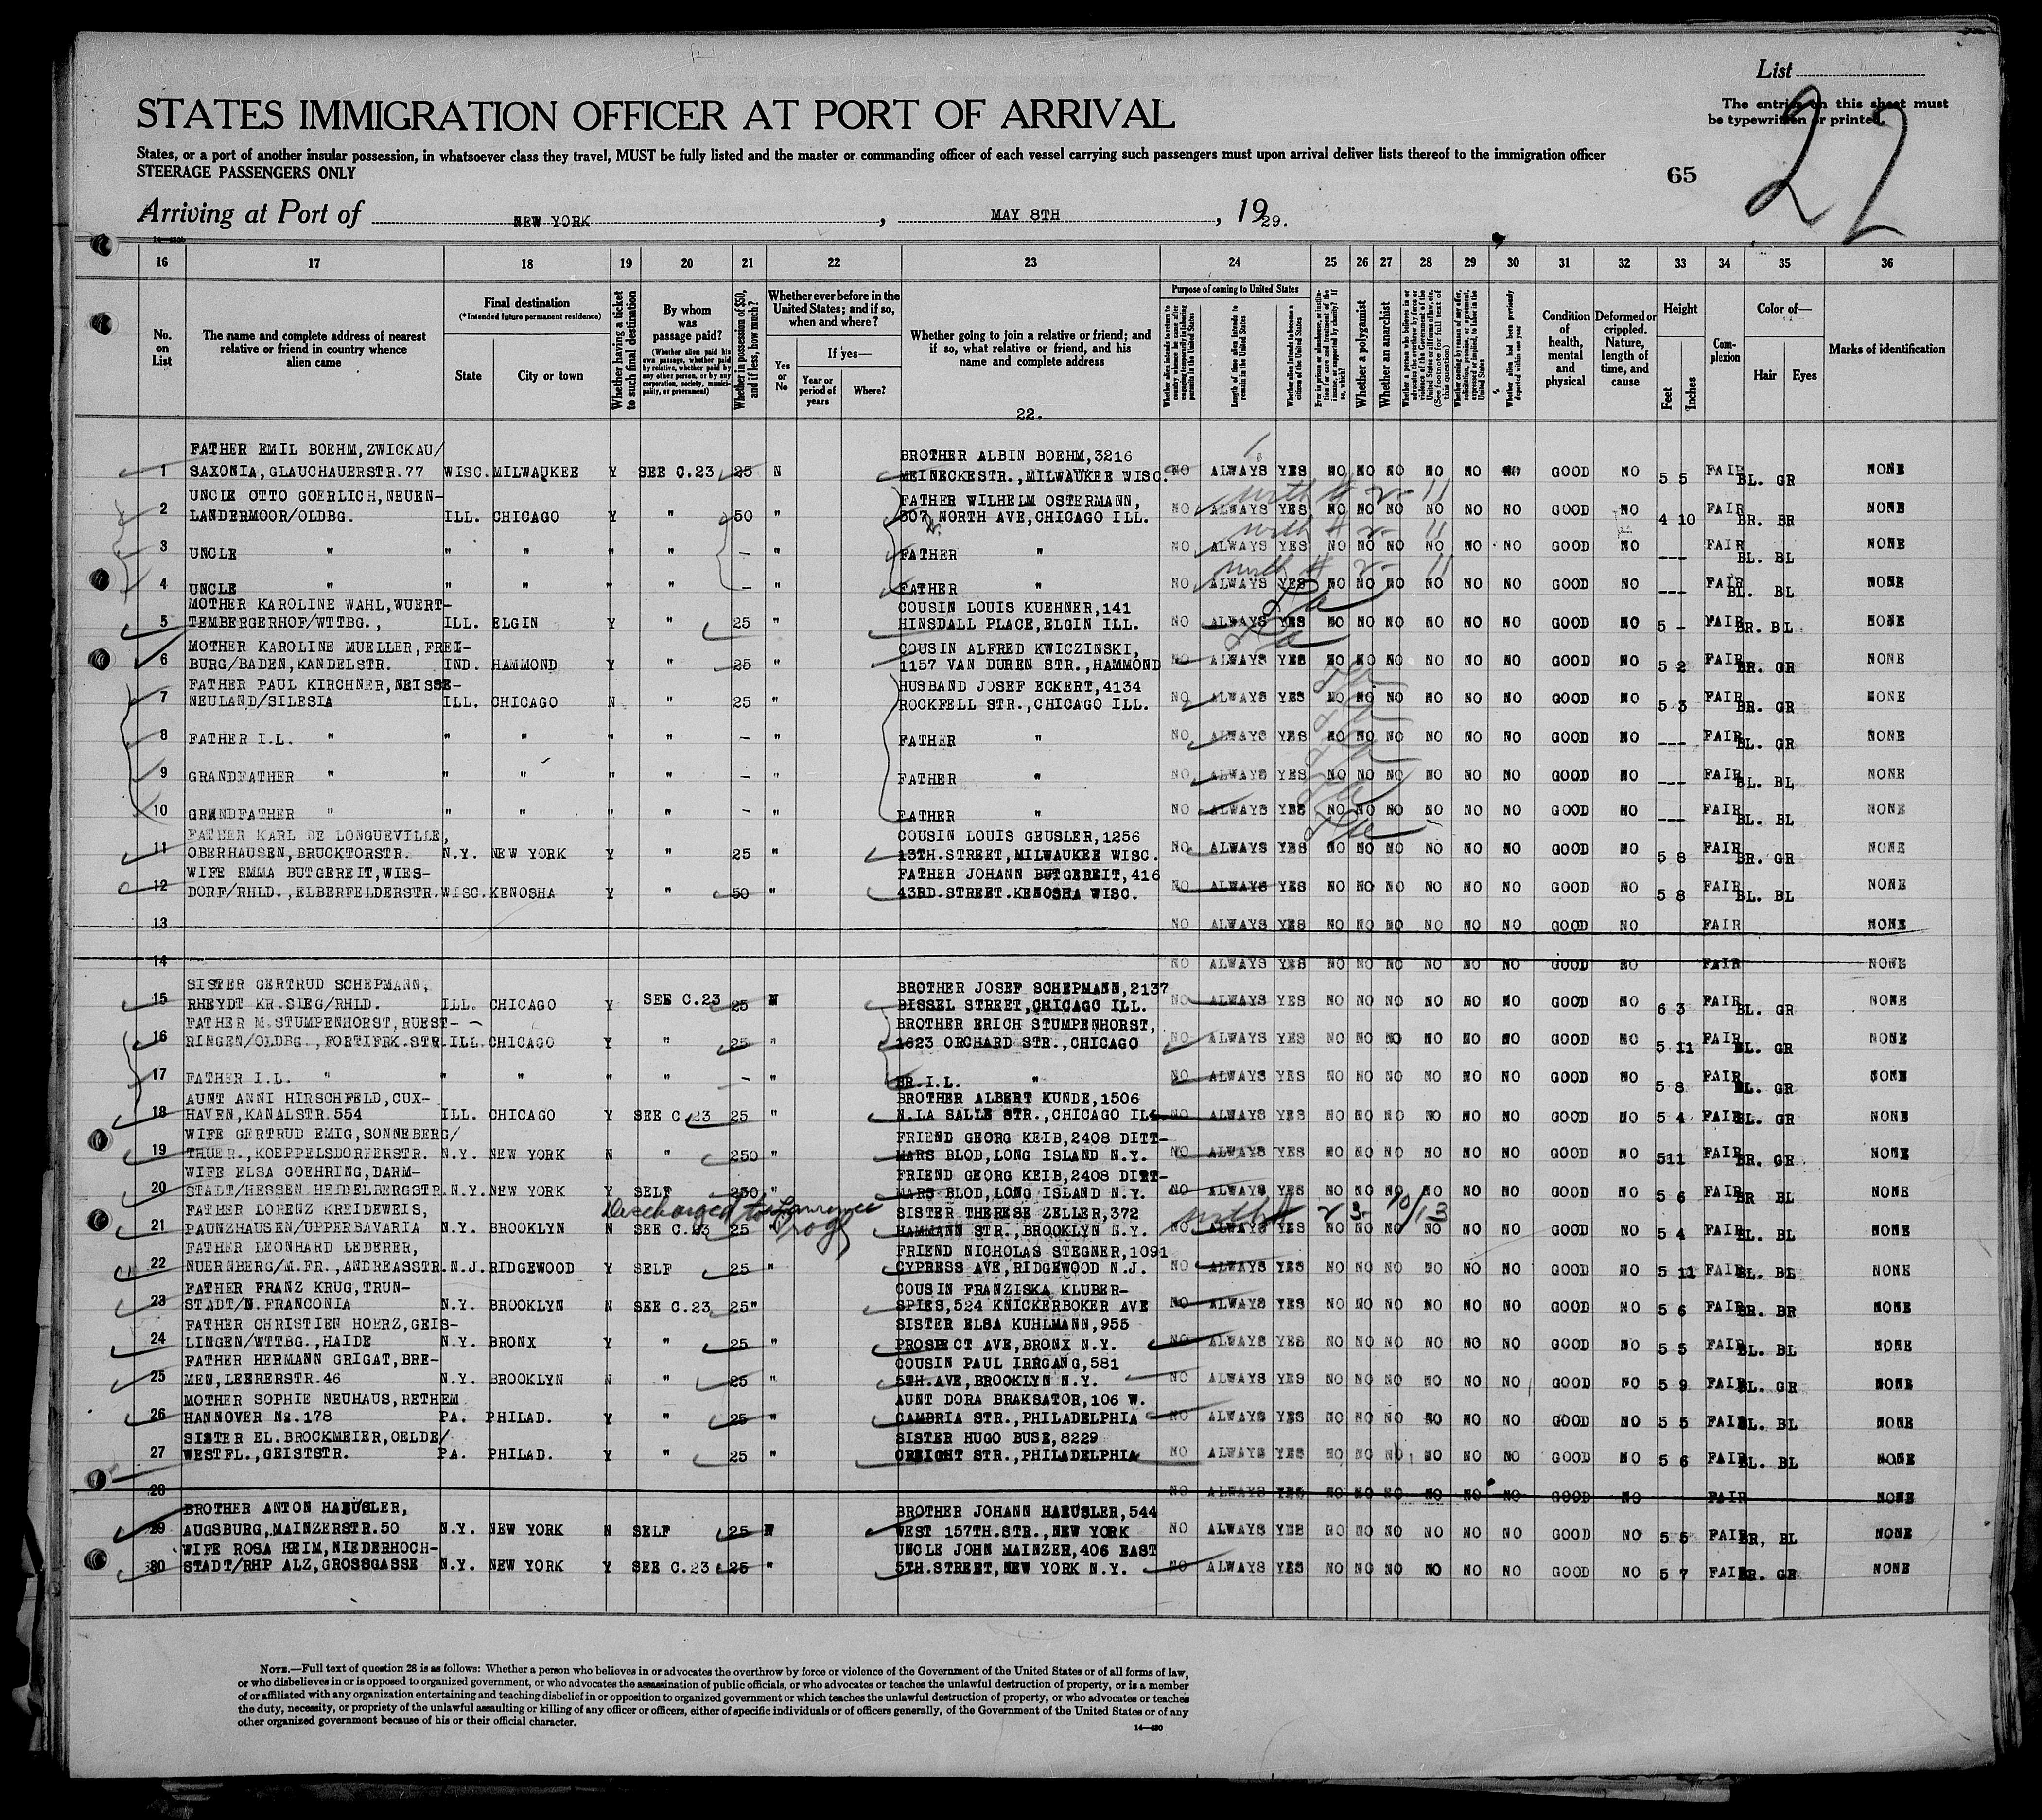 List
The entries on this sheet must
be typewritten or printed.
22
STATES IMMIGRATION OFFICER AT PORT OF ARRIVAL
States, or a port of another insular possession, in whatsoever class they travel, MUST be fully listed and the master or commanding officer of each vessel carrying such passengers must upon arrival deliver lists thereof to the immigration officer
STEERAGE PASSENGERS ONLY
65
Arriving at Port of NEW YORK, MAY 8TH, 1929.
16 17 18 19 20 21 22 23 24 25 26 27 28 29 30 31 32 33 34 35 36
No. on List
The name and complete address of nearest relative or friend in country whence alien came
Final destination
(*Intended future permanent residence)
State City or town
Whether having a ticket to such final destination
By whom was passage paid?
(Whether alien paid his own passage, whether paid by relative, whether paid by any other person, or by any corporation, society, municipality, or government)
Whether in possession of $50, and if less, how much?
Whether ever before in the United States; and if so, when and where?
Yes or No
If yes—
Year or period of years
Where?
Whether going to join a relative or friend; and if so, what relative or friend, and his name and complete address
22.
Purpose of coming to United States
Length of time alien intends to remain in the United States
Whether alien intends to become a citizen of the United States
Whether a polygamist
Whether an anarchist
(See footnote for full text of this question)
Whether alien had been previously deported within one year
Condition of health, mental and physical
Deformed or crippled. Nature, length of time, and cause
Height
Feet Inches
Complexion
Color of—
Hair Eyes
Marks of identification
FATHER EMIL BOEHM,ZWICKAU/ BROTHER ALBIN BOEHM,3216
1 SAXONIA,GLAUCHAUERSTR.77 WISC. MILWAUKEE Y SEE C.23 25 N MEINECKESTR.,MILWAUKEE WISC. NO ALWAYS YES NO NO NO NO NO NO GOOD NO 5 5 FAIR BL. GR NONE
UNCLE OTTO GOERLICH,NEUEN- FATHER WILHELM OSTERMANN,
2 LANDERMOOR/OLDBG. ILL. CHICAGO Y " 50 " 807 NORTH AVE,CHICAGO ILL. NO ALWAYS YES NO NO NO NO NO NO GOOD NO 4 10 FAIR BR. BR NONE
3 UNCLE " " " " " - " FATHER " NO ALWAYS YES NO NO NO NO NO NO GOOD NO --- FAIR BL. BL NONE
4 UNCLE " " " " " - " FATHER " NO ALWAYS YES NO NO NO NO NO NO GOOD NO --- FAIR BL. BL NONE
MOTHER KAROLINE WAHL,WUERT- COUSIN LOUIS KUEHNER,141
5 TEMBERGERHOF/WTTBG., ILL. ELGIN Y " 25 " HINSDALL PLACE,ELGIN ILL. NO ALWAYS YES NO NO NO NO NO NO GOOD NO 5 - FAIR BR. BL NONE
MOTHER KAROLINE MUELLER,FREI- COUSIN ALFRED KWICZINSKI,
6 BURG/BADEN,KANDELSTR. IND. HAMMOND Y " 25 " 1157 VAN DUREN STR.,HAMMOND NO ALWAYS YES NO NO NO NO NO NO GOOD NO 5 2 FAIR BR. GR NONE
FATHER PAUL KIRCHNER,NEISSE- HUSBAND JOSEF ECKERT,4134
7 NEULAND/SILESIA ILL. CHICAGO N " 25 " ROCKFELL STR.,CHICAGO ILL. NO ALWAYS YES NO NO NO NO NO NO GOOD NO 5 3 FAIR BR. GR NONE
8 FATHER I.L. " " " " " - " FATHER " NO ALWAYS YES NO NO NO NO NO NO GOOD NO --- FAIR BL. GR NONE
9 GRANDFATHER " " " " " - " FATHER " NO ALWAYS YES NO NO NO NO NO NO GOOD NO --- FAIR BL. BL NONE
10 GRANDFATHER " " " " " - " FATHER " NO ALWAYS YES NO NO NO NO NO NO GOOD NO --- FAIR BL. BL NONE
FATHER KARL DE LONGUEVILLE, COUSIN LOUIS GEUSLER,1256
11 OBERHAUSEN,BRUCKTORSTR. N.Y. NEW YORK Y " 25 " 13TH.STREET,MILWAUKEE WISC. NO ALWAYS YES NO NO NO NO NO NO GOOD NO 5 8 FAIR BR. GR NONE
WIFE EMMA BUTGEREIT,WIES- FATHER JOHANN BUTGEREIT,416
12 DORF/RHLD.,ELBERFELDERSTR. WISC. KENOSHA Y " 50 " 43RD.STREET.KENOSHA WISC. NO ALWAYS YES NO NO NO NO NO NO GOOD NO 5 8 FAIR BL. BL NONE
13 NO ALWAYS YES NO NO NO NO NO NO GOOD NO FAIR NONE
14 NO ALWAYS YES NO NO NO NO NO NO GOOD NO FAIR NONE
SISTER GERTRUD SCHEPMANN, BROTHER JOSEF SCHEPMANN,2137
15 RHEYDT KR.SIEG/RHLD. ILL. CHICAGO Y SEE C.23 25 N BISSEL STREET,CHICAGO ILL. NO ALWAYS YES NO NO NO NO NO NO GOOD NO 6 3 FAIR BL. GR NONE
FATHER M.STUMPENHORST,RUEST- BROTHER ERICH STUMPENHORST,
16 RINGEN/OLDBG.,FORTIFRK.STR. ILL. CHICAGO Y " 25 " 1623 ORCHARD STR.,CHICAGO NO ALWAYS YES NO NO NO NO NO NO GOOD NO 5 11 FAIR BL. GR NONE
17 FATHER I.L. " " " " " - " BR.I.L. " NO ALWAYS YES NO NO NO NO NO NO GOOD NO 5 8 FAIR BL. GR NONE
AUNT ANNI HIRSCHFELD,CUX- BROTHER ALBERT KUNDE,1506
18 HAVEN,KANALSTR.554 ILL. CHICAGO Y SEE C.23 25 " N.LA SALLE STR.,CHICAGO ILL NO ALWAYS YES NO NO NO NO NO NO GOOD NO 5 4 FAIR BL. GR NONE
WIFE GERTRUD EMIG,SONNEBERG/ FRIEND GEORG KEIB,2408 DITT-
19 THUER.,KOEPPELSDORFERSTR. N.Y. NEW YORK N " 250 " MARS BLOD,LONG ISLAND N.Y. NO ALWAYS YES NO NO NO NO NO NO GOOD NO 511 FAIR BR. GR NONE
WIFE ELSA GOEHRING,DARM- FRIEND GEORG KEIB,2408 DITT-
20 STADT/HESSEN HEIDELBERGSTR. N.Y. NEW YORK Y SELF 250 " MARS BLOD,LONG ISLAND N.Y. NO ALWAYS YES NO NO NO NO NO NO GOOD NO 5 6 FAIR BR BL NONE
Discharged to Lawrence
FATHER LORENZ KREIDEWEIS, SISTER THERESE ZELLER,372
21 PAUNZHAUSEN/UPPERBAVARIA N.Y. BROOKLYN N SEE C.23 25 " HAMMANN STR.,BROOKLYN N.Y. NO ALWAYS YES NO NO NO NO NO NO GOOD NO 5 4 FAIR BL. BL NONE
FATHER LEONHARD LEDERER, FRIEND NICHOLAS STEGNER,1091
22 NUERNBERG/M.FR.,ANDREASSTR. N.J. RIDGEWOOD Y SELF 25 " CYPRESS AVE,RIDGEWOOD N.J. NO ALWAYS YES NO NO NO NO NO NO GOOD NO 5 11 FAIR BL. BL NONE
FATHER FRANZ KRUG,TRUN- COUSIN FRANZISKA KLUBER-
23 STADT/N.FRANCONIA N.Y. BROOKLYN N SEE C.23 25" SPIES,524 KNICKERBOKER AVE NO ALWAYS YES NO NO NO NO NO NO GOOD NO 5 6 FAIR BR. BR NONE
FATHER CHRISTIEN HOERZ,GEIS- SISTER ELSA KUHLMANN,955
24 LINGEN/WTTBG.,HAIDE N.Y. BRONX Y " 25 " PROSPECT AVE,BRONX N.Y. NO ALWAYS YES NO NO NO NO NO NO GOOD NO 5 5 FAIR BL. BL NONE
FATHER HERMANN GRIGAT,BRE- COUSIN PAUL IRRGANG,581
25 MEN,LEERERSTR.46 N.Y. BROOKLYN N " 25 " 5TH.AVE,BROOKLYN N.Y. NO ALWAYS YES NO NO NO NO NO NO GOOD NO 5 9 FAIR BL. GR NONE
MOTHER SOPHIE NEUHAUS,RETHEM AUNT DORA BRAKSATOR,106 W.
26 HANNOVER No.178 PA. PHILAD. Y " 25 " CAMBRIA STR.,PHILADELPHIA NO ALWAYS YES NO NO NO NO NO NO GOOD NO 5 5 FAIR BL. BL NONE
SISTER EL.BROCKMEIER,OELDE/ SISTER HUGO BUSE,8229
27 WESTFL.,GEISTSTR. PA. PHILAD. Y " 25 " CREIGHT STR.,PHILADELPHIA NO ALWAYS YES NO NO NO NO NO NO GOOD NO 5 6 FAIR BL. BL NONE
28 NO ALWAYS YES NO NO NO NO NO NO GOOD NO FAIR NONE
BROTHER ANTON HAEUSLER, BROTHER JOHANN HAEUSLER,544
29 AUGSBURG,MAINZERSTR.50 N.Y. NEW YORK N SELF 25 N WEST 157TH.STR.,NEW YORK NO ALWAYS YES NO NO NO NO NO NO GOOD NO 5 5 FAIR BR, BL NONE
WIFE ROSA HEIM,NIEDERHOCH- UNCLE JOHN MAINZER,406 EAST
30 STADT/RHP ALZ,GROSSGASSE N.Y. NEW YORK Y SEE C.23 25 " 5TH.STREET,NEW YORK N.Y. NO ALWAYS YES NO NO NO NO NO NO GOOD NO 5 7 FAIR BR. GR NONE
NOTE.—Full text of question 28 is as follows: Whether a person who believes in or advocates the overthrow by force or violence of the Government of the United States or of all forms of law,
or who disbelieves in or is opposed to organized government, or who advocates the assassination of public officials, or who advocates or teaches the unlawful destruction of property, or is a member
of or affiliated with any organization entertaining and teaching disbelief in or opposition to organized government or which teaches the unlawful destruction of property, or who advocates or teaches
the duty, necessity, or propriety of the unlawful assaulting or killing of any officer or officers, either of specific individuals or of officers generally, of the Government of the United States or of any
other organized government because of his or their official character.
14—480